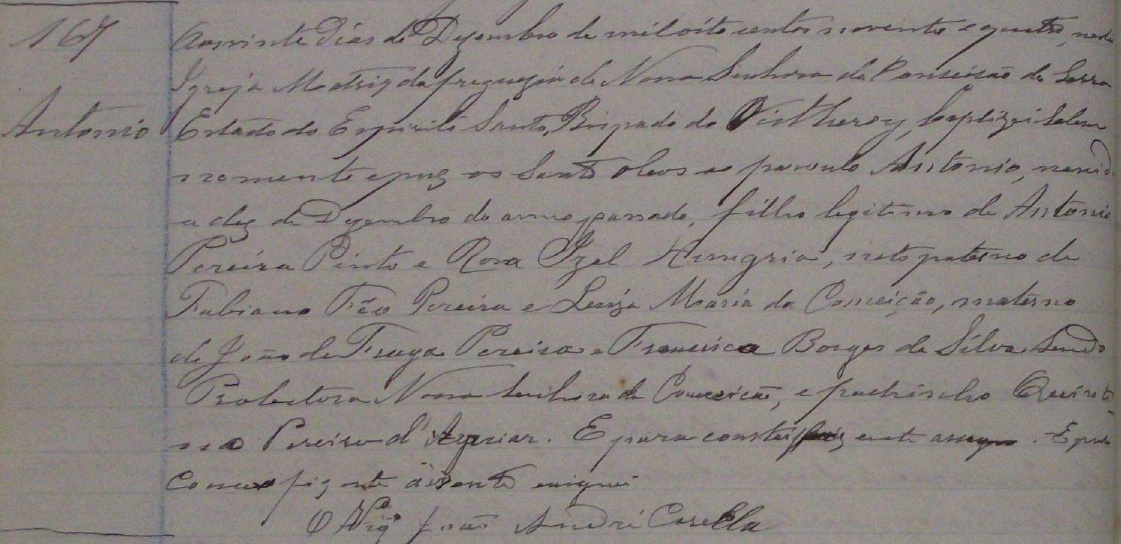 167
Aos vinte dias de Dezembro de mil oito centos noventa e quatro, nesta
Igreja Matriz da freguezia de Nossa Senhora da Conceicão da Serra
Antonio
Estado do Espirito Santo, Bispado do Nictheroy, baptizei solem
nemente e puz os Santos oleos ao parvulo Antonio, nascido
a dez de Dezembro do anno passado, filho legitimo de Antonio
Pereira Pinto e Rosa Izel Hungria, neto paterno de
Fabiano Féo Pereira e Luiza Maria da Conceição, materno
de João de Fraga Pereira e Francisca Borges da Silva, Sendo
Protectora Nossa Senhora da Conceicão, e padrinho Quinti-
no Pereira d'Aguiar. E para constar este . E para
constar fiz este assento
O Vigº João André Casella